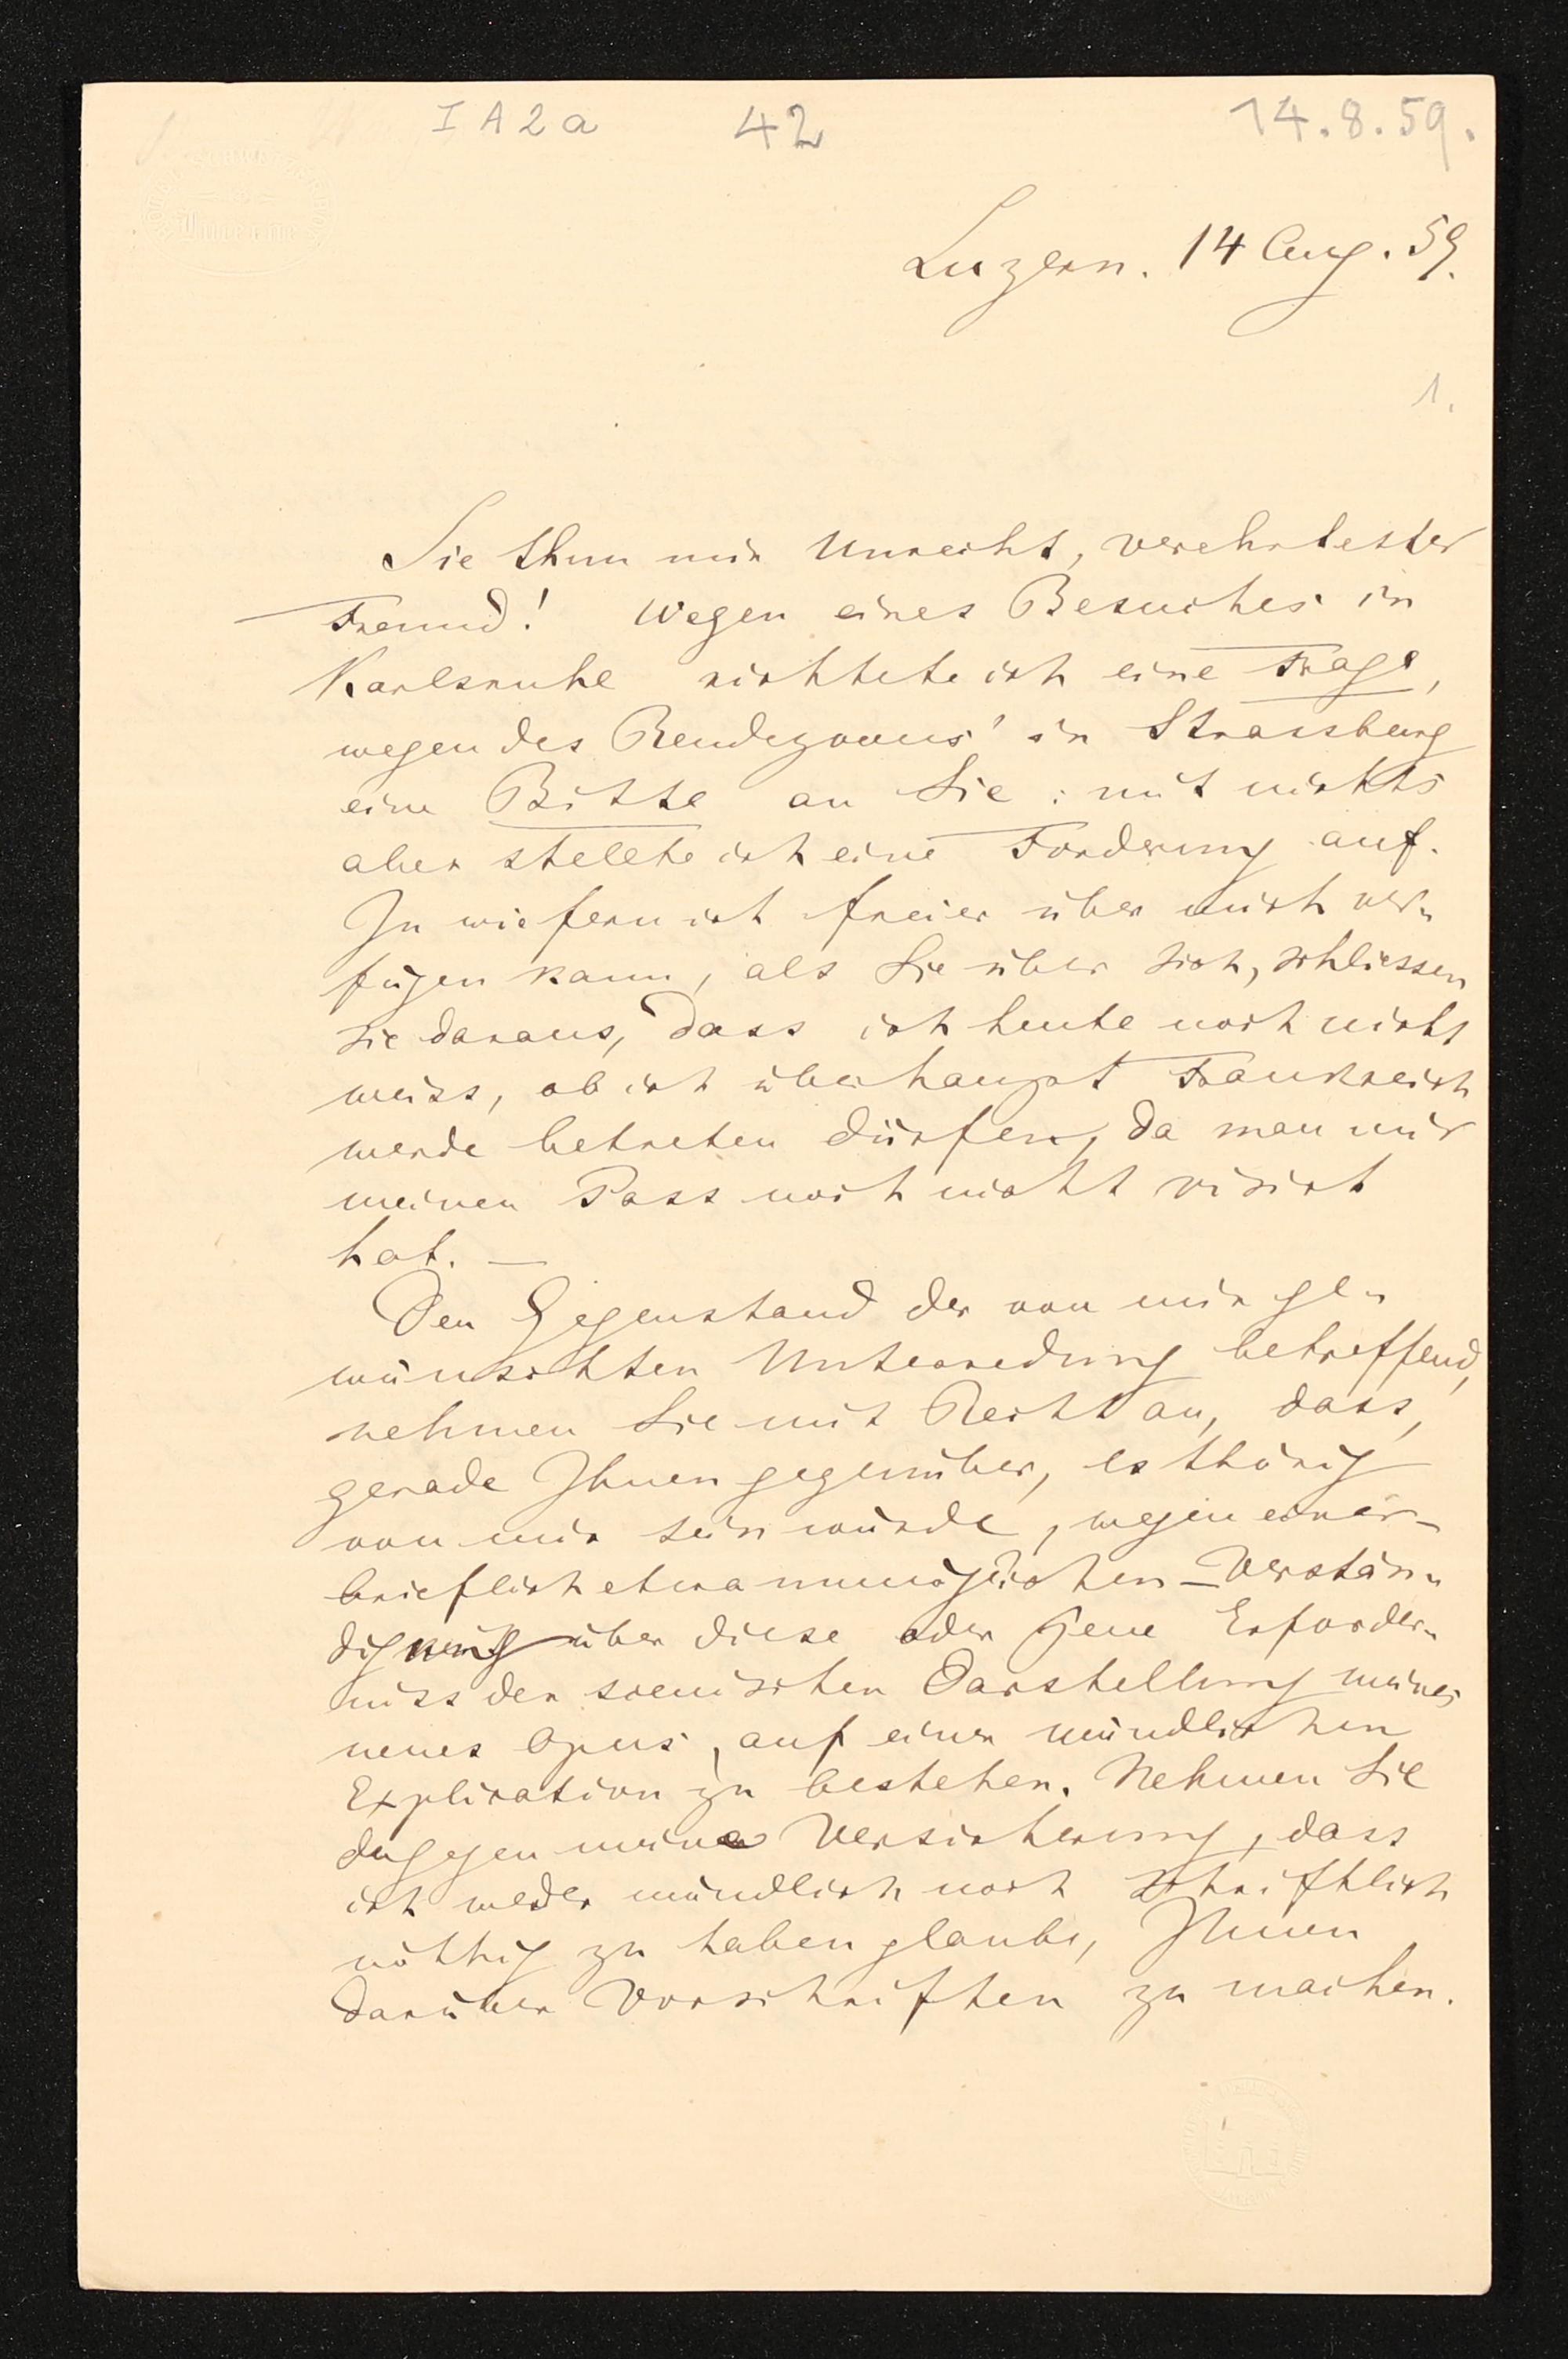 I A 2 a 42 14.8.59.
Luzerne
Luzern. 14 Aug. 59.
1.
Sie thun mir Unrecht, verehrtester
Freund! Wegen eines Besuches in
Karlsruhe richtete ich eine Frage,
wegen des Rendezvous' in Strassburg
eine Bitte an Sie: mit nichts
aber stellte ich eine Forderung auf.
In wie fern ich freier über mich ver-
fügen kann, als Sie über sich, schliessen
Sie daraus, dass ich heute noch nicht
weiss, ob ich überhaupt Frankreich
werde betreten dürfen, da man mir
meinen Pass noch nicht visirt
hat. —
Den Gegenstand der von mir ge-
wünschten Unterredung betreffend,
nehmen Sie mit Recht an, dass,
gerade Ihnen gegenüber, es thörig
von mir sein würde, wegen einer -
brieflich etwa unmöglichen - Verstän-
digung über diese oder jene Erforder-
niss der scenischen Darstellung meines
neues Opus, auf einer mündlichen
Explication zu bestehen. Nehmen Sie
dagegen meine Versicherung, dass
ich weder mündlich noch schriftlich
nöthig zu haben glaube, Ihnen
darüber Vorschriften zu machen.